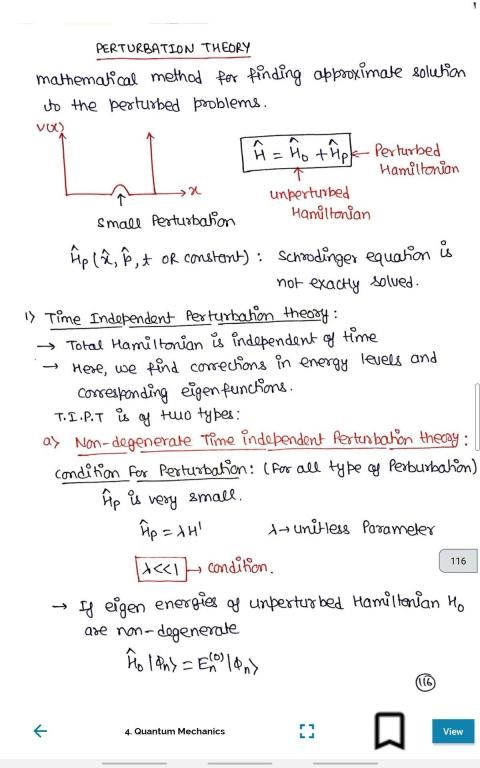 1
PERTURBATION THEORY
mathematical method for finding approximate solution
to the perturbed problems.
V(x)
x
Small Perturbation
Ĥ = Ĥ₀ + Ĥp ← Perturbed Hamiltonian
unperturbed
Hamiltonian
Ĥp (x̂, p̂, t OR constant) : Schrodinger equation is
not exactly solved.
1) Time Independent Perturbation theory :
→ Total Hamiltonian is independent of time
→ Here, we find corrections in energy levels and
corresponding eigenfunctions.
T.I.P.T is of two types:
a) Non-degenerate Time independent Perturbation theory :
Condition For Perturbation: (For all type of Perburbation)
Ĥp is very small.
Ĥp = λH' λ→ unitless Parameter
λ<<1 → condition.
116
→ If eigen energies of unperturbed Hamiltonian H₀
are non-degenerate
Ĥ₀ |ϕn⟩ = En⁽⁰⁾ |ϕn⟩
116
4. Quantum Mechanics
View